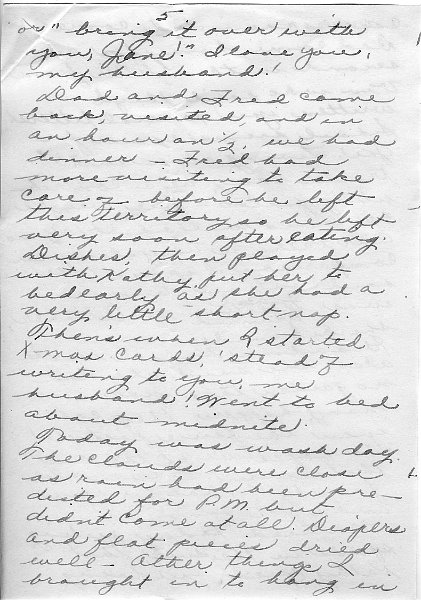 5
or "bring it over with
you, Jane!" I love you,
my husband!
Dad and Fred came
back, visited, and in
an hour an ½, we had
dinner – Fred had
more visiting to take
care of before he left
this territory so he left
very soon after eating.
Dishes, then played
with Kathy, put her to
bed early as she had a
very little short nap.
Then's when I started
X-mas cards, 'stead of
writing to you, me
husband! Went to bed
about midnite.
Today was wash day.
The clouds were close
as rain had been pre-
dicted for P.M. but
didn't come at all. Diapers
and flat pieces dried
well – Other things I
brought in to hang in